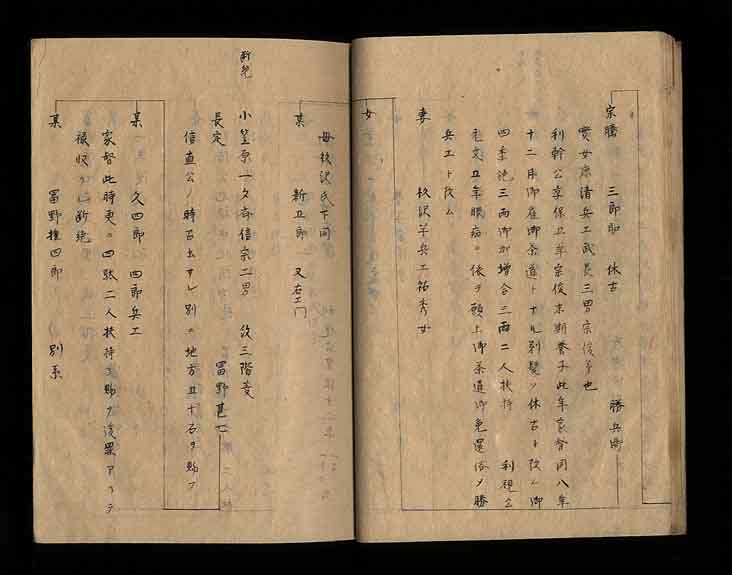 宗勝 三郎助 休古 勝兵衛
実女鹿清兵工武長三男宗俊弟也
利幹公享保五年宗俊末期養子此年家督同八年
十二月御雇御茶道トナル剃髪ノ休古ト改ム御
四季施三両御 増合三両二人扶持 利視公
元文五年眼病ニ依テ願上御茶道御免還俗ノ勝
兵工ト改ム
妻 杉沢半兵工祐秀女
女
母杉沢氏下同
某 新五郎 又右エ門
断絶
小笠原一夕斎信宗二男 改三階菱
長定 冨野甚七
信直公ノ時召出サレ別ニ地方五十石ヲ賜フ
某 久四郎 四郎兵工
家督此時更ニ四駄二人扶持 賜フ後罪アッテ
禄収公 断絶
某 冨野権四郎 別系